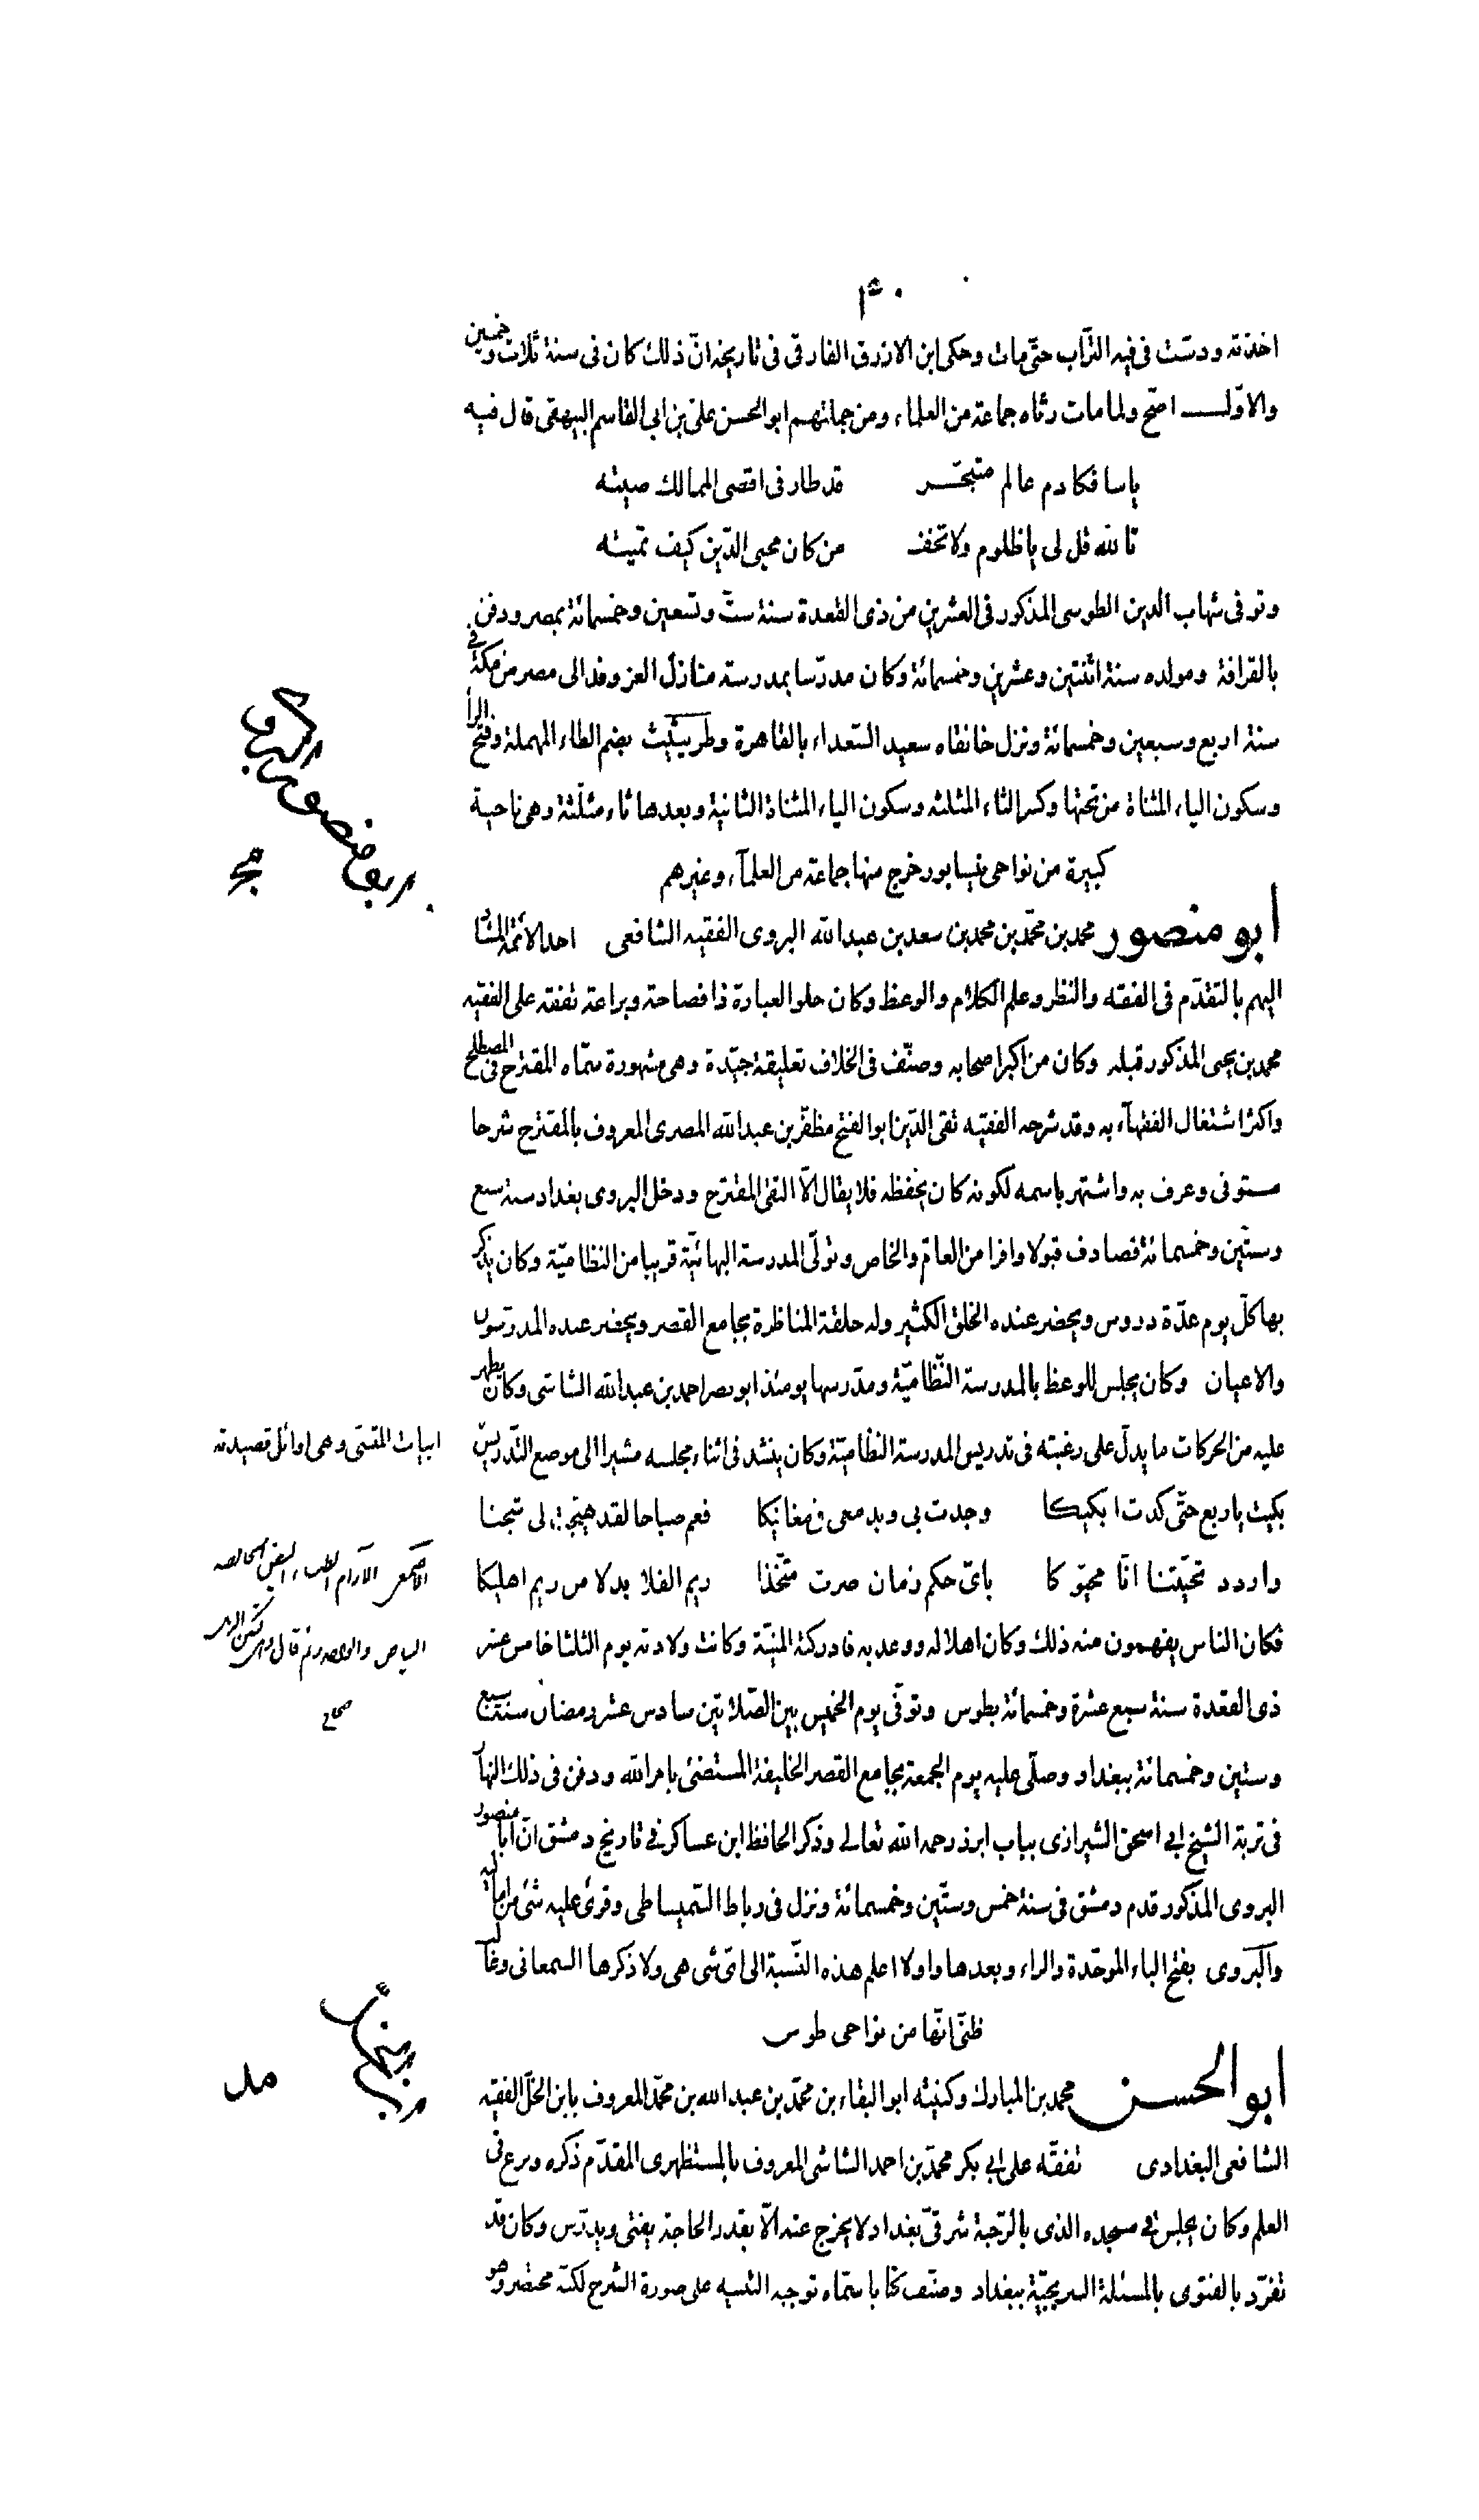 اخذته ودست فى فيه التراب حتّى مات وحكى ابن الازرق الفارقى فى تاريخه انّ ذلك كان فى سنة ثلاث وخمسين
والاوّل اصحّ ولما مات رثاه جماعة من العلماء ومن جملتهم ابو الحسن على بن ابى القاسم البيهقى قال فيه
ياسافكا دم عالم متبحّر قد طار فى اقصى الممالك صيته
تالله قل لى ياظلوم ولا تخف من كان محيى الدّين كيف تميته
وتوفى شهاب الدين الطوسى المذكور فى العشرين من ذى القعدة سنة ستّ وتسعين وخمسمائة بمصر ودفن
بالقرافة ومولده سنة اثنتين وعشرين وخمسمائة وكان مدرّسا بمدرسة منازل العز وفد الى مصر من مكة فى
سنة اربع وسبعين وخمسمائة ونزل خانقاه سعيد السّعداء بالقاهرة وطريثيث بضم الطاء المهملة وفتح الرا
وسكون الياء المثناة من تحتها وكسر الثاء المثلثه وسكون الياء المثناة الثانية وبعدها ثاء مثلّثة وهى ناحية
كبيرة من نواحى نيسابور خرج منها جماعة من العلمآء وغيرهم
ابو منصور محمد بن محمّد بن محمد بن سعد بن عبدالله البروى الفقيه الشافعى احد الائمة المشار
اليهم بالتقدّم فى الفقه والنظر وعلم الكلام والوعظ وكان حلو العبارة ذا فصاحة وبراعة تفقه على الفقيه
محمد بن يحيى المذكور قبله وكان من اكبر اصحابه وصنّف فى الخلاف تعليقة جيّدة وهى مشهورة سمّاه المقترح فى المصطلح
واكثر اشتغال الفقهآء به وقد شرحه الفقيه تقى الدّين ابو الفتح مظفّر بن عبدالله المصرى المعروف بالمقترح شرحا
مستوفى وعرف به واشتهر باسمه لكونه كان يحفظه فلا يقال الّا التقى المقترح ودخل البروى بغداد سنة سبع
وستّين وخمسمائة فصادف قبولا وافرا من العامّ والخاص وتولّى المدرسة البهائيّة قريبا من النظاميّة وكان يذكر
بها كلّ يوم عدّة دروس ويحضر عنده الخلق الكثير وله حلقة المناظرة بجامع القصر ويحضر عنده المدرّسون
والاعيان وكان يجلس للوعظ بالمدرسة النّظاميّة ومدّرسها يومئذ ابو نصر احمد بن عبدالله الشاشى وكان يظهر
عليه من الحركات ما يدلّ على رغبته فى تدريس المدرسة النظاميّة وكان ينشد فى اثناء مجلسه مشيرا الى موضع التّدريس
ابيات المتنبى وهى اوائل قصيدته
بكيت ياربع حتّى كدت ابكيكا وجدت بى وبدمعى فى مغانيكا فعم صباحا لقد هيّجت لى شجنا
واردد تحيّتنا انّا محيّوكا باىّ حكم زمان صرت متّخذا ريم الفلا بدلا من ريم اهليكا
فكان الناس يفهمون منه ذلك وكان اهلا له ووعد به فادركته المنيّة وكانت ولادته يوم الثلثا خامس عشر
ذى القعدة سنة سبع عشرة وخمسمائة بطوس وتوفّى يوم الخميس بين الصّلاتين سادس عشر رمضان سنة سبع
صحاح
وستين وخمسمائة ببغداد وصلّى عليه يوم الجمعة بجامع القصر الخليفة المستضئ بامر الله ودفن فى ذلك النهار
فى تربة الشيخ ابى اسحق الشيرازى بباب ابرز رحمه الله تعالى وذكر الحافظ ابن عساكر فى تاريخ دمشق انّ ابا منصور
البروى المذكور قدم دمشق فى سنة خمس وستّين وخمسمائة ونزل فى رباط السّميساطى وقرئ عليه شئ من اماليه
والبروى بفتح الباء الموحّدة والراء وبعدها واو لا اعلم هذه النّسبة الى اىّ شى هى ولا ذكرها السمعانى وغالب
ظنّى انّها من نواحى طوس
ابو الحسن محمد بن المبارك وكنيته ابو البقاء بن محمّد بن عبدالله بن محمّد المعروف بابن الخلّ الفقيه
الشافعى البغدادى تفقّه على ابى بكر محمّد بن احمد الشاشى المعروف بالمستظهرى المقدّم ذكره وبرع فى
العلم وكان يجلس فى مسجده الذى بالرّحبة شرقىّ بغداد لا يخرج عنه الّا بقدر الحاجة يفتى ويدرّس وكان قد
تفرّد بالفتوى بالمسئلة السريجيّة ببغداد وصنّف كتابا سمّاه توجيه التنبيه على صورة الشرح لكنّه مختصر وهو